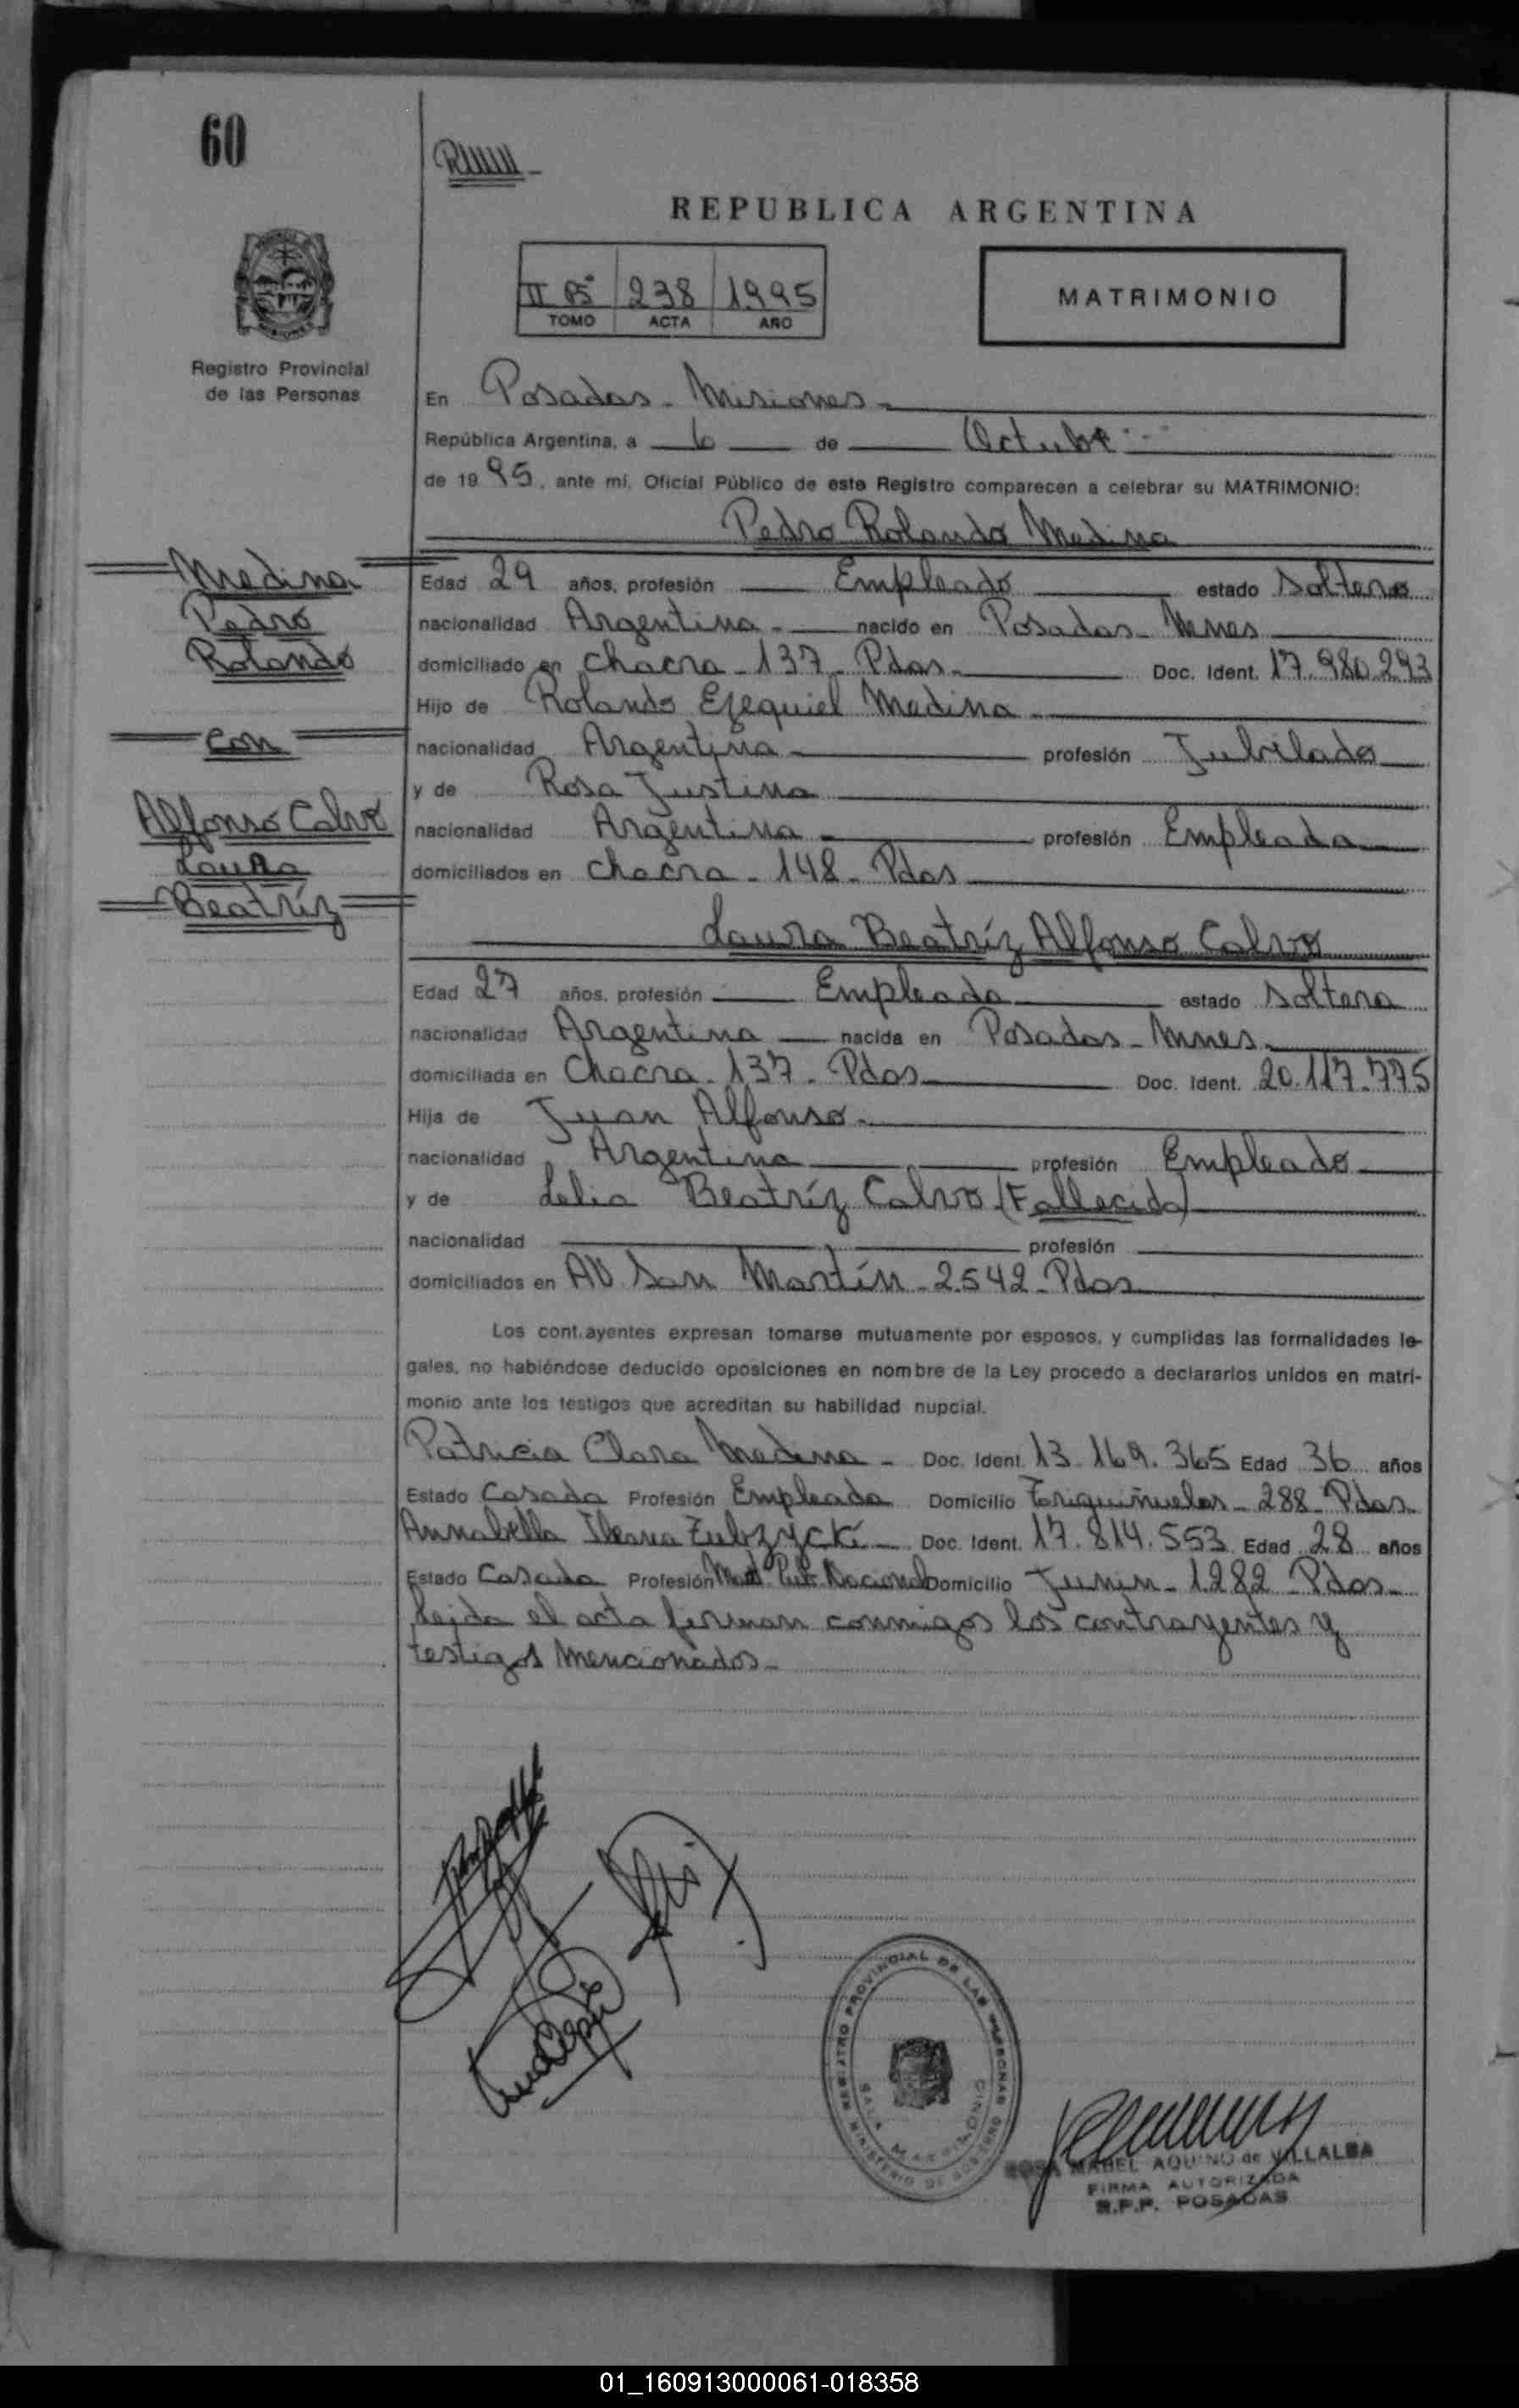 60
REPUBLICA ARGENTINA
238 1995
TOMO ACTA AÑO
MATRIMONIO
Registro Provincial
de las Personas
En Posadas - Misiones -
República Argentina, a 6 de Octubre
de 1995, ante mí, Oficial Público de este Registro comparecen a celebrar su MATRIMONIO:
Pedro Rolando Medina
Medina
Pedro
Rolando
con
Alfonso Calvo
Laura
Beatríz
Edad 29 años, profesión Empleado estado Soltero
nacionalidad Argentina - nacido en Posadas - Mnes
domiciliado en Chacra - 137 - Pdas - Doc. Ident. 17.980.293
Hijo de Rolando Ezequiel Medina
nacionalidad Argentina profesión Jubilado
y de Rosa Justina
nacionalidad Argentina profesión Empleada
domiciliados en Chacra - 148 - Pdas
Laura Beatríz Alfonso Calvo
Edad 27 años, profesión Empleada estado Soltera
nacionalidad Argentina nacida en Posadas - Mnes -
domiciliada en Chacra - 137 - Pdas Doc. Ident. 20.117.775
Hija de Juan Alfonso -
nacionalidad Argentina profesión Empleado
y de Lelia Beatríz Calvo (Fallecida)
nacionalidad profesión
domiciliados en AV. San Martín - 2542 - Pdas
Los cont.ayentes expresan tomarse mutuamente por esposos, y cumplidas las formalidades le-
gales, no habiéndose deducido oposiciones en nombre de la Ley procedo a declararlos unidos en matri-
monio ante los testigos que acreditan su habilidad nupcial.
Patricia Clara Medina - Doc. Ident. 13.169.365 Edad 36 años
Estado Casada Profesión Empleada Domicilio - 288 - Pdas
Annabella Ileana Zubrzycki - Doc. Ident. 17.814.553 Edad 28 años
Estado Casada Profesión Nacional Domicilio Junin - 1282 - Pdas -
Leida el acta firman conmigos los contrayentes y
testigos mencionados -
REGISTRO PROVINCIAL DE LAS PERSONAS
SALA MATRIMONIO
MINISTERIO DE GOBIERNO
ROSA MABEL AQUINO de VILLALBA
FIRMA AUTORIZADA
R.P.P. POSADAS
01_160913000061-018358